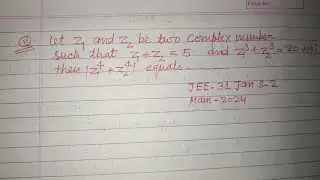 (V) Let Z₁ and Z₂ be two complex number
such that Z₁+Z₂ = 5 and Z₁³+Z₂³ = 20+15i
then |Z₁⁴+Z₂⁴| equals.
JEE-31 Jan 3-2
Main-2024